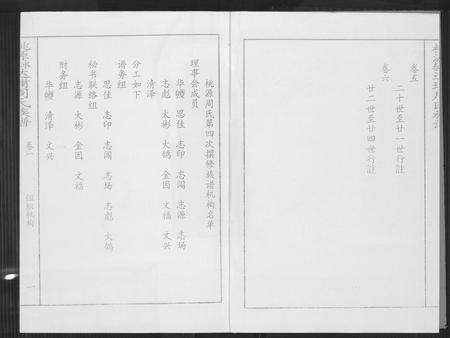 卷五
二十世至廿一世行註
卷六
廿二世至廿四世行註
桃源周氏第四次撰修族谱机构名单
理事会成员
华幔 思佳 志印 志闯 志源 志场
志彪 大彬 大鸽 金因 文福 文兴
清泽
分工如下
谱务组
思佳 志印 志闯 志场 志彪 大鸽
秘书联络组
志源 大彬 金因 文福
财务组
华幔 清泽 文兴
卷一
组织机构
一